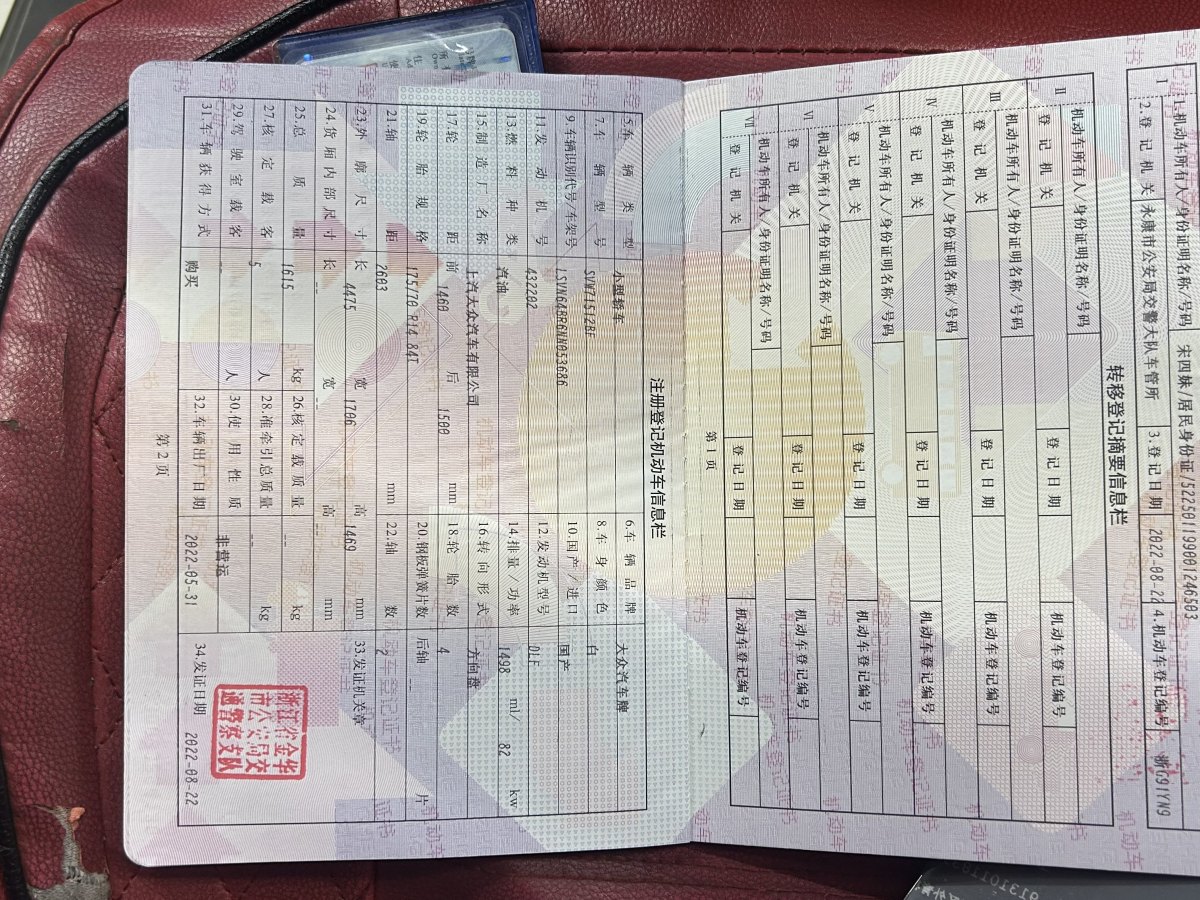 I 1.机动车所有人/身份证明名称/号码 宋四妹/居民身份证/522501199001246503
2.登记机关 永康市公安局交警大队车管所 3.登记日期 2022-08-22 4.机动车登记编号 浙G91YN9
转移登记摘要信息栏
II 机动车所有人/身份证明名称/号码
登记机关 登记日期 机动车登记编号
III 机动车所有人/身份证明名称/号码
登记机关 登记日期 机动车登记编号
IV 机动车所有人/身份证明名称/号码
登记机关 登记日期 机动车登记编号
V 机动车所有人/身份证明名称/号码
登记机关 登记日期 机动车登记编号
VI 机动车所有人/身份证明名称/号码
登记机关 登记日期 机动车登记编号
VII 机动车所有人/身份证明名称/号码
登记机关 登记日期 机动车登记编号
第1页
注册登记机动车信息栏
5.车辆类型 小型轿车 6.车辆品牌 大众汽车牌
7.车辆型号 SVW71512BF 8.车身颜色 白
9.车辆识别代号/车架号 LSVN648R6NN053686 10.国产/进口 国产
11.发动机号 432202 12.发动机型号 DLF
13.燃料种类 汽油 14.排量/功率 1498 ml/ 82 kw
15.制造厂名称 上汽大众汽车有限公司 16.转向形式 方向盘
17.轮距 前 1460 后 1500 mm 18.轮胎数 4
19.轮胎规格 175/70 R14,84T 20.钢板弹簧片数 后轴 -- 片
21.轴距 2603 mm 22.轴数 2
23.外廓尺寸 长 4475 宽 1706 高 1469 mm 33.发证机关章
24.货厢内部尺寸 长 -- 宽 -- 高 -- mm
25.总质量 1615 kg 26.核定载质量 -- kg
27.核定载客 5 人 28.准牵引总质量 -- kg
29.驾驶室载客 -- 人 30.使用性质 非营运
浙江省金华市公安局交通警察支队
31.车辆获得方式 购买 32.车辆出厂日期 2022-05-31 34.发证日期 2022-08-22
第2页